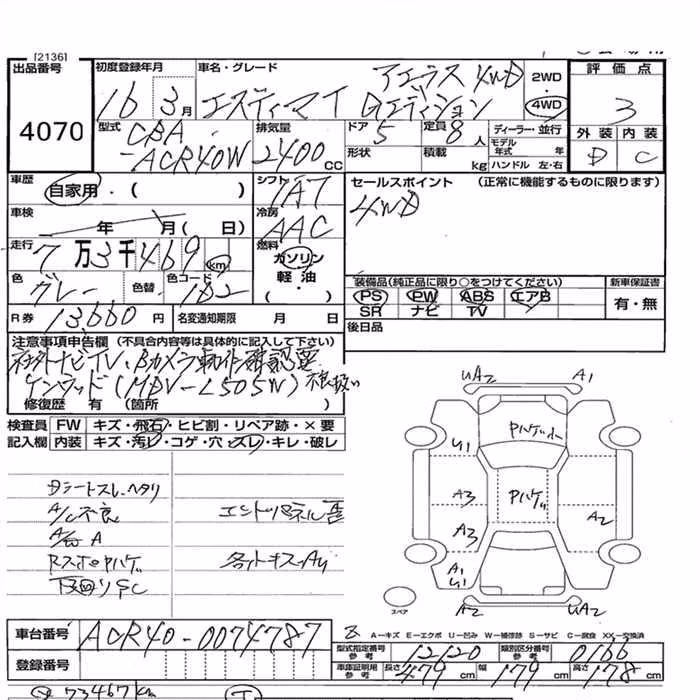 [2136]
出品番号
4070
初度登録年月
16 3月
車名・グレード
アエラス 4WD
エスティマ T Gエディション
2WD
4WD
評価点
3
外装 内装
D C
型式
CBA
-ACR40W
排気量
2400cc
ドア
5
定員
8人
形状
積載
kg
ディーラー・並行
モデル年式 年
ハンドル 左・右
車歴
自家用・( )
シフト
IAT
セールスポイント (正常に機能するものに限ります)
4WD
車検
年 月( 日)
冷房
AAC
走行
7万3千469km
燃料
ガソリン
軽油
・( )
色
グレー
色替
色コード
182
装備品(純正品に限り○をつけてください)
PS PW ABS エアB
SR ナビ TV
新車保証書
有・無
R券
13,660円
名変通知期限 月 日
後日品
注意事項申告欄 (不具合内容等は具体的に記入して下さい)
社外ナビTV、Bカメラ動作確認要
ケンウッド(MDV-L505W)
修復歴 有 (箇所 )
検査員
記入欄
FW キズ・飛石・ヒビ割・リペア跡・×要
内装 キズ・汚レ・コゲ・穴・スレ・キレ・破レ
Dシートスレ、ヘタリ
A/C不良
Rスポイハゲ
下回りSC
エンドパネル
各ットキズ、AU
UA2 A1
Pハゲ
U1
A3
Pハゲ
A3
A2
A1
U1
A2 UA2
スペア
A−キズ E−エクボ U−凹み W−補修跡 S−サビ C−腐食 XX−交換済
車台番号
ACR40-0074787
型式指定番号
参考
12120
類別区分番号
参考
0166
登録番号
車庫証明用
参考
長さ 479cm 幅 179cm 高さ 178cm
73467km